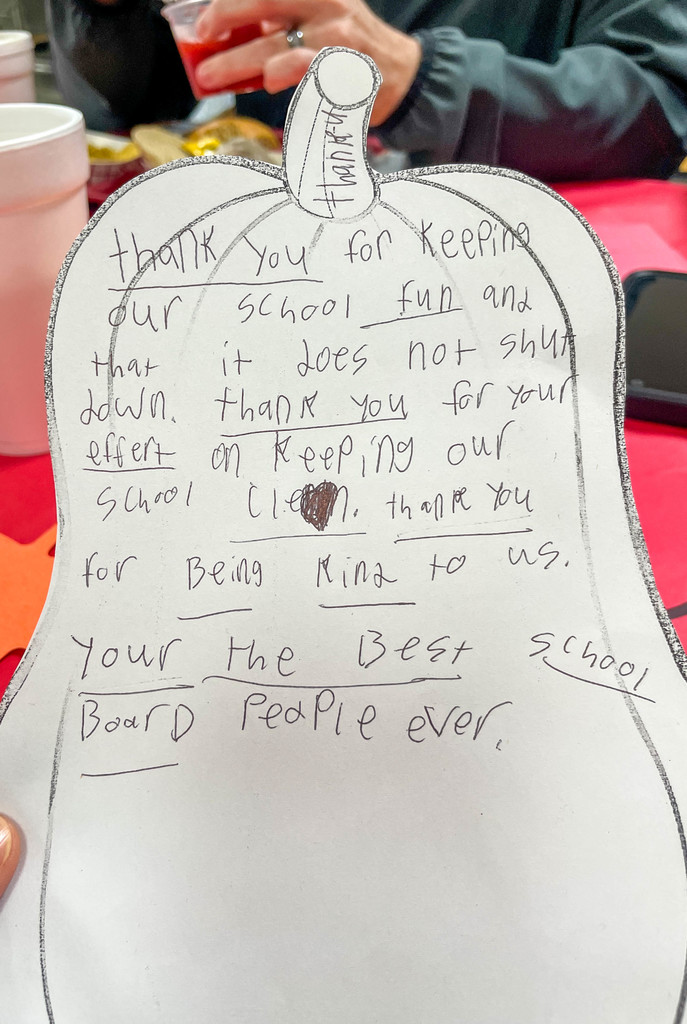 thank u
thank you for keeping
our school fun and
that it does not shut
down. thank you for your
effert on keeping our
school clean. thank you
for Being kind to us.
your the Best school
BoarD PeaPle ever.